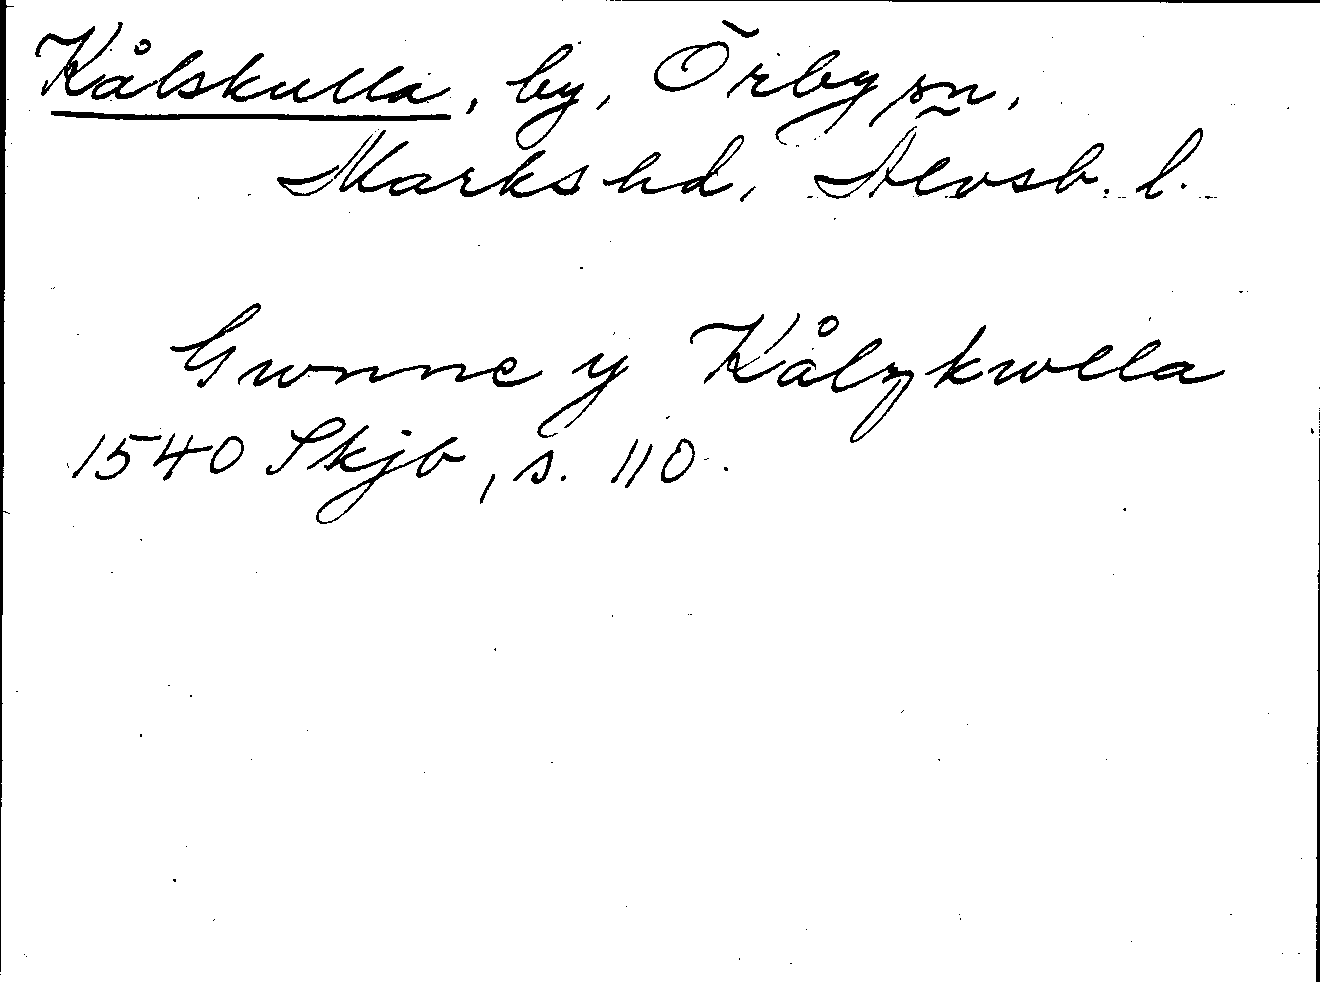 Kålskulla, by, Örby sn,
Marks hd, Älvsb. l.
Gwnne y Kålzkwlla
1540 Skjb, s. 110.